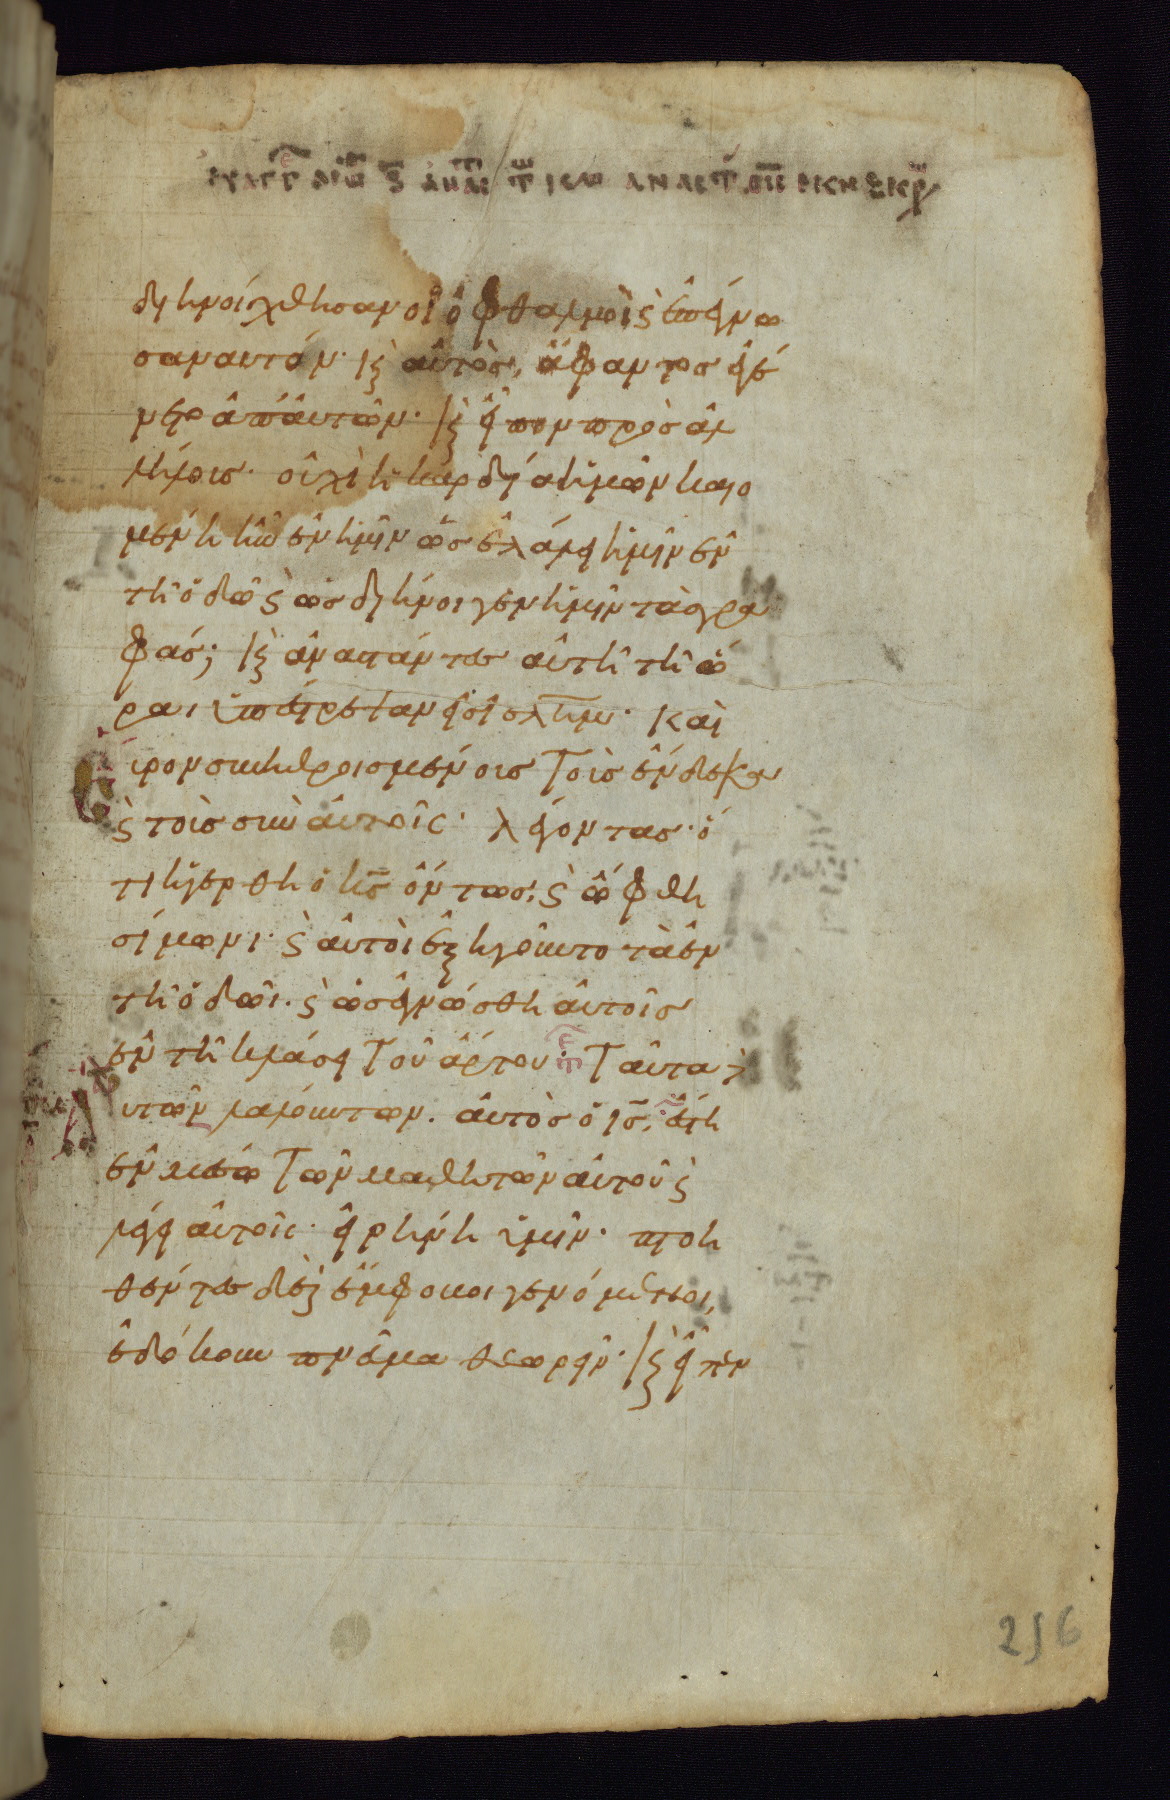 διηνοίχθησαν οἱ ὀφθαλμοὶ ϛ ἐπέγνω
σαν αυτόν· κ̣ αὐτὸς, ἄφαντος ἐγέ
νετο ἀπ' ἀυτῶν· κ̣ εἶπον πρὸς ἀλ
λήλους· οὐχὶ ἡ καρδία ἡμῶν καιο
μένη ἦν ἐν ἡμῖν ὡς ἐλάλει ἡμῖν ἐν
τῆ ὁδῶ ϛ ὡς διήνοιγεν ἡμῖν τὰς γρα
φάς; κ̣ ἀναστάντες αὐτῆ τῆ ὥ
ραι ὑπέστρεψαν εἰς ἱλ̅η̅μ· καὶ
εὗρον συνηθροισμένους τοὺς ἕνδεκα
ϛ τοὺς σὺν ἀυτοῖς· λέγοντας· ὅ
τι ἠγέρθη ὁ κ̅ς̅ ὄντως, ϛ ὤφθη
σίμωνι· ϛ ἀυτοὶ ἐξηγοῦντο τὰ ἐν
τῆ ὁδῶι. ϛ ὡς ἐγνώσθη ἀυτοῖς
ἐν τῆ κλάσει τοῦ ἄρτου· ταῦτα δὲ
αὐτῶν λαλούντων. ἀυτὸς ὁ ι̅ς̅, ἔστη
ἐν μέσω τῶν μαθητῶν αὐτοῦ ϛ
λέγει ἀυτοῖς· εἰρήνη ὑμῖν· πτοη
θέντες δὲ ϛ ἔμφοβοι γενόμενοι,
ἐδόκουν πνεῦμα θεωρεῖν· κ̣ εἶπεν
256